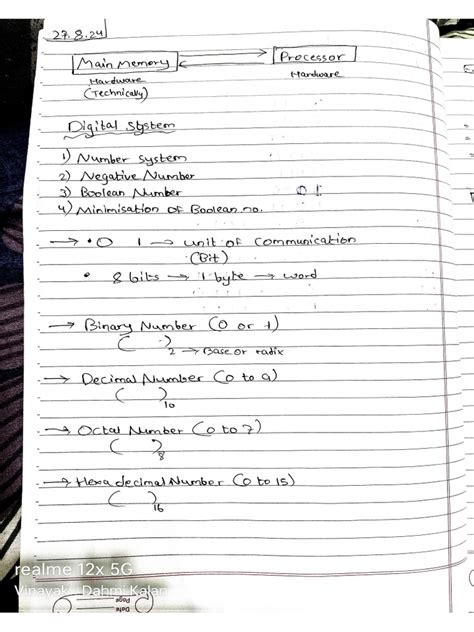 27.8.24
Main Memory Processor
Hardware Hardware
(Technically)
Digital System
1) Number system
2) Negative Number
3) Boolean Number 0 1
4) Minimisation of Boolean no.
→ • 0 1 → unit of communication
(Bit)
• 8 bits → 1 byte → word
→ Binary Number (0 or 1)
( )2 → Base or radix
→ Decimal Number (0 to 9)
( )10
→ Octal Number (0 to 7)
( )8
→ Hexadecimal Number (0 to 15)
( )16
realme 12x 5G
Vinayak, Dahmi Kalan
Date
Page